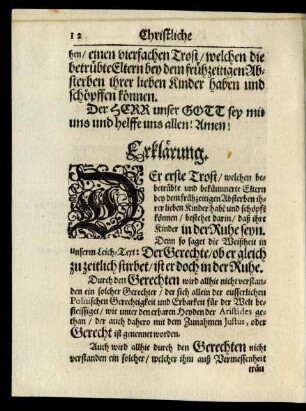 12 Christliche
hen/ einen vierfachen Trost/ welchen die
betrübte Eltern bey dem frühzeitigen Ab-
sterben ihrer lieben Kinder haben und
schöpffen können.
Der HERR unser GOTT sey mit
uns und helffe uns allen! Amen!
Erklärung.
DEr erste Trost/ welchen be-
betrübte und bekümmerte Eltern
bey dem frühzeitigen Absterben ih-
rer lieben Kinder habē und schöpffē
können/ bestehet darin/ daß ihre
Kinder in der Ruhe seyn.
Denn so saget die Weißheit in
unserm Leich-Text: Der Gerechte/ ob er gleich
zu zeitlich stirbet/ ist er doch in der Ruhe.
Durch den Gerechten wird allhie nicht verstan-
den ein solcher Gerechter/ der sich allein der eusserlichen
Politischen Gerechtigkeit und Erbarkeit für der Welt be-
fleissiget/ wie unter den erbaren Heyden der Aristides ge-
than/ der auch dahero mit dem Zunahmen Justus, oder
Gerecht ist genennet worden.
Auch wird allhie durch den Gerechten nicht
verstanden ein solcher/ welcher ihm auß Vermessenheit
träu